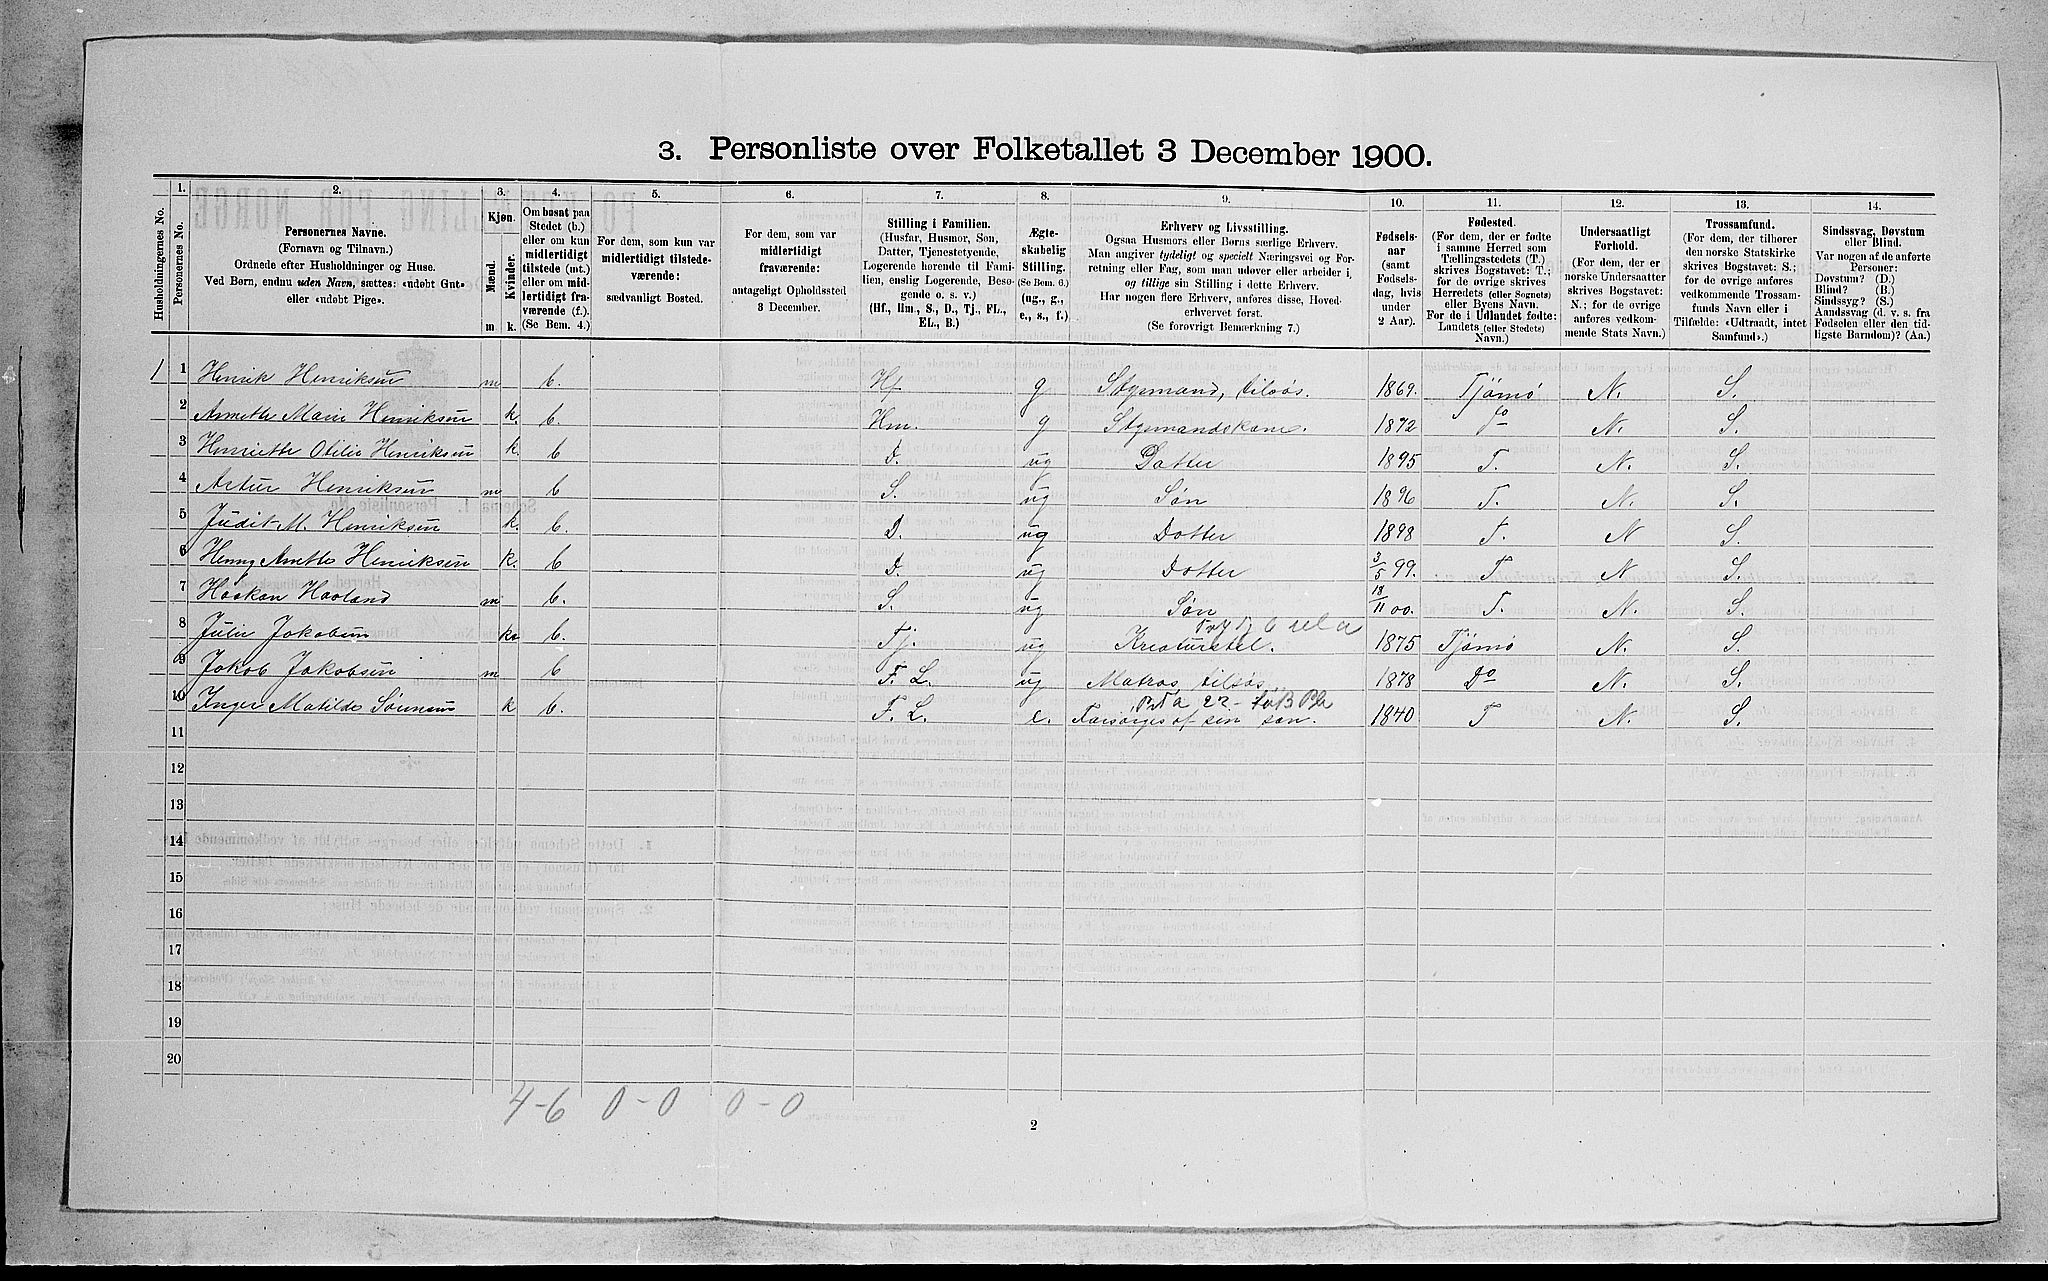 3. Personliste over Folketallet 3 December 1900.
Husholdningernes No.
1.
Personernes No.
2.
Personernes Navne.
(Fornavn og Tilnavn.)
Ordnede efter Husholdninger og Huse.
Ved Børn, endnu uden Navn, sættes: «udøbt Gut»
eller «udøbt Pige».
3.
Kjøn.
Mænd.
Kvinder.
m
k.
4.
Om bosat paa
Stedet (b.)
eller om kun
midlertidigt
tilstede (mt.)
eller om mid-
lertidigt fra-
værende (f.).
(Se Bem. 4.)
5.
For dem, som kun var
midlertidigt tilstede-
værende:
sædvanligt Bosted.
6.
For dem, som var
midlertidigt
fraværende:
antageligt Opholdssted
3 December.
7.
Stilling i Familien.
(Husfar, Husmor, Søn,
Datter, Tjenestetyende,
Logerende hørende til Fami-
lien, enslig Logerende, Besø-
gende o. s. v.)
(Hf., Hm., S., D., Tj., FL.,
EL., B.)
8.
Ægte-
skabelig
Stilling.
(Se Bem. 6.)
(ug., g.,
e., s., f.)
9.
Erhverv og Livsstilling.
Ogsaa Husmors eller Børns særlige Erhverv.
Man angiver tydeligt og specielt Næringsvei og For-
retning eller Fag, som man udøver eller arbeider i,
og tillige sin Stilling i dette Erhverv.
Har nogen flere Erhverv, anføres disse, Hoved-
erhvervet først.
(Se forøvrigt Bemærkning 7.)
10.
Fødsels-
aar
(samt
Fødsels-
dag, hvis
under
2 Aar).
11.
Fødested.
(For dem, der er fødte
i samme Herred som
Tællingsstedets (T.)
skrives Bogstavet: T.;
for de øvrige skrives
Herredets (eller Sognets)
eller Byens Navn.
For de i Udlandet fødte:
Landets (eller Stedets)
Navn.)
12.
Undersaatligt
Forhold.
(For dem, der er
norske Undersaatter
skrives Bogstavet:
N.; for de øvrige
anføres vedkom-
mende Stats Navn.)
13.
Trossamfund.
(For dem, der tilhører
den norske Statskirke
skrives Bogstavet: S.;
for de øvrige anføres
vedkommende Trossam-
funds Navn eller i
Tilfælde: «Udtraadt, intet
Samfund».)
14.
Sindssvag, Døvstum
eller Blind.
Var nogen af de anførte
Personer:
Døvstum? (D.)
Blind? (B.)
Sindssyg? (S.)
Aandssvag (d. v. s. fra
Fødselen eller den tid-
ligste Barndom)? (Aa.)
1 1 Henrik Henriksen m b. Hf g Stysmand, tilsøs. 1869. Tjømø N. S.
2 Annette Marie Henriksen k. b. Hm. g Stysmandskone. 1872 Do N. S.
3 Henriette Otilie Henriksen k. b D. ug Datter 1895 T. N. S.
4 Artur Henriksen m b S. ug Søn 1896 T. N. S.
5 Judit M. Henriksen k. b. D. ug Dotter 1898 T. N S.
6 Henny Anette Henriksen k. b D. ug Dotter 3/5 99. T N S.
7 Haakon Haaland m b. S. ug Søn 18/11 00. T. N. S.
8 Julie Jakobsen k b. Tj. ug Kreaturstel. 1875 Tjømø N. S.
9 Jakob Jakobsen m. b F. L. ug Matros tilsøs 1878 Do N. S.
10 Inger Matilde Sørensen k b. F. L. e. Forsørges af sin søn. 1840 T N. S.
11
12
13
14
15
16
17
18
19
20
4-6 0-0 0-0
2